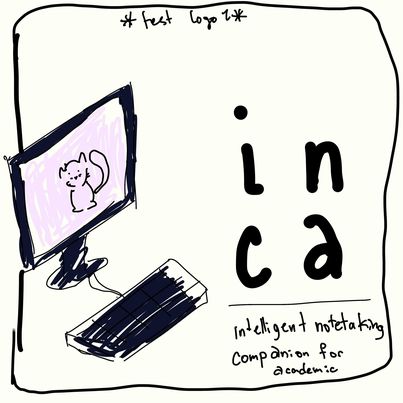 *test logo?*
in
ca
intelligent notetaking
companion for
academic